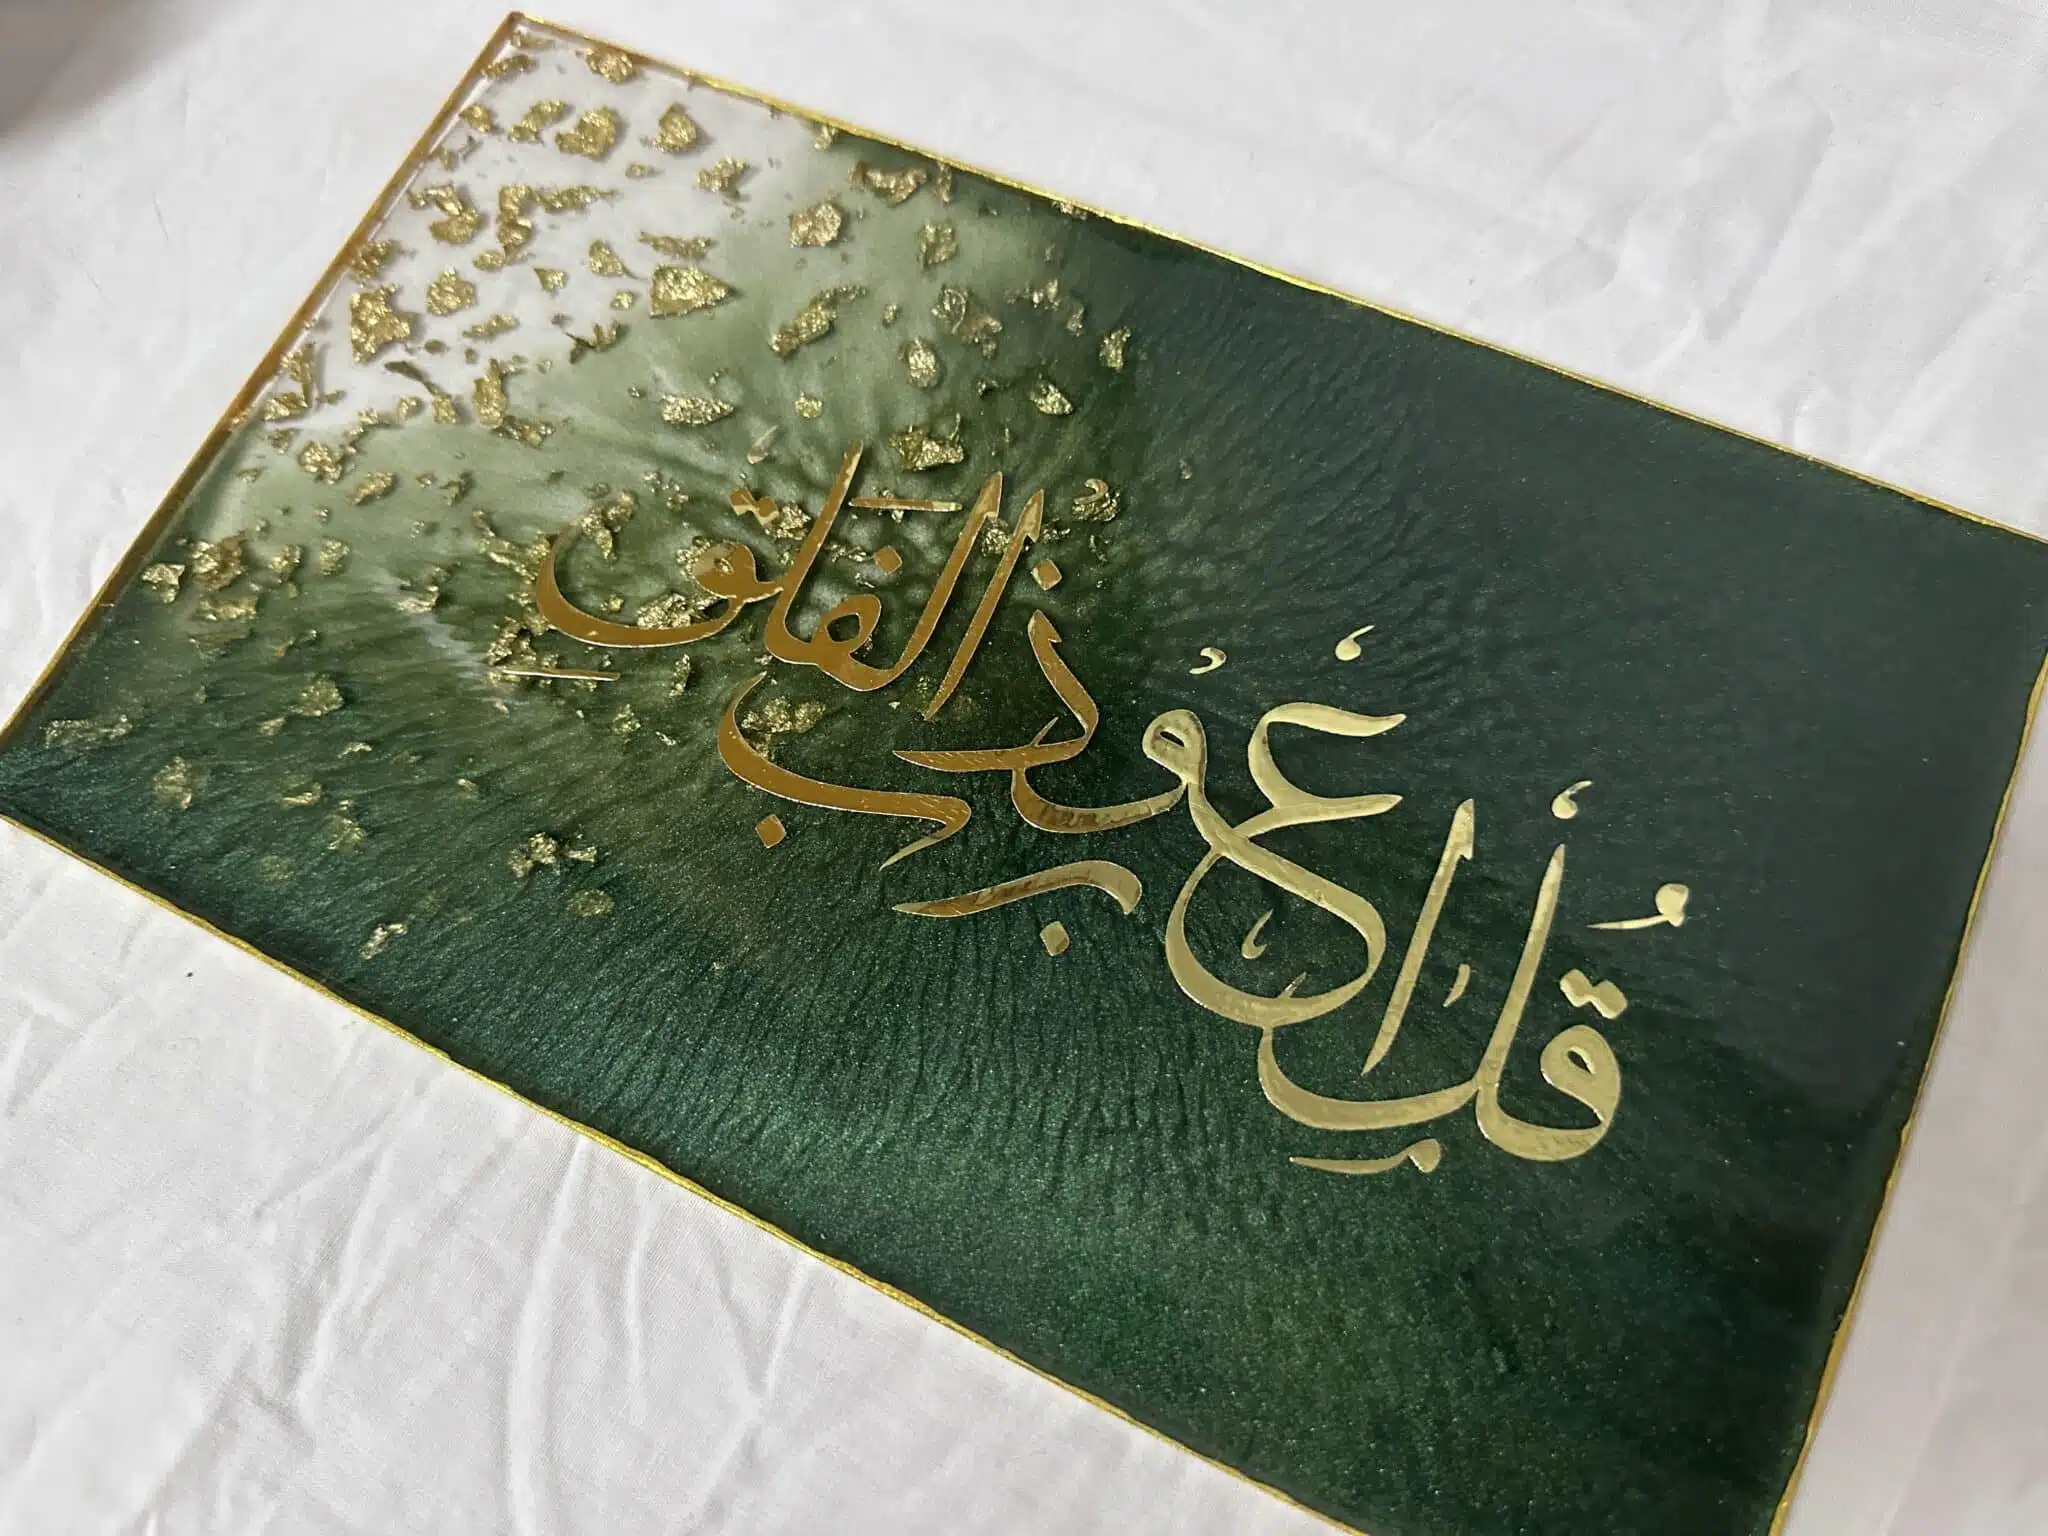 قُلْ أَعُوذُ بِرَبِّ الْفَلَقِ